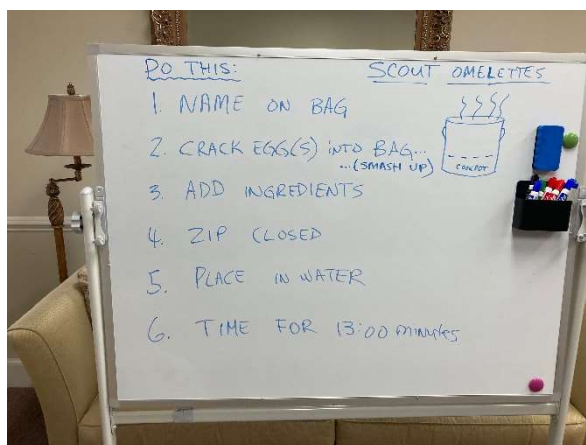 DO THIS:
SCOUT OMELETTES
1. NAME ON BAG
2. CRACK EGG(S) INTO BAG...
...(SMASH UP)
3. ADD INGREDIENTS
4. ZIP CLOSED
5. PLACE IN WATER
6. TIME FOR 13:00 minutes